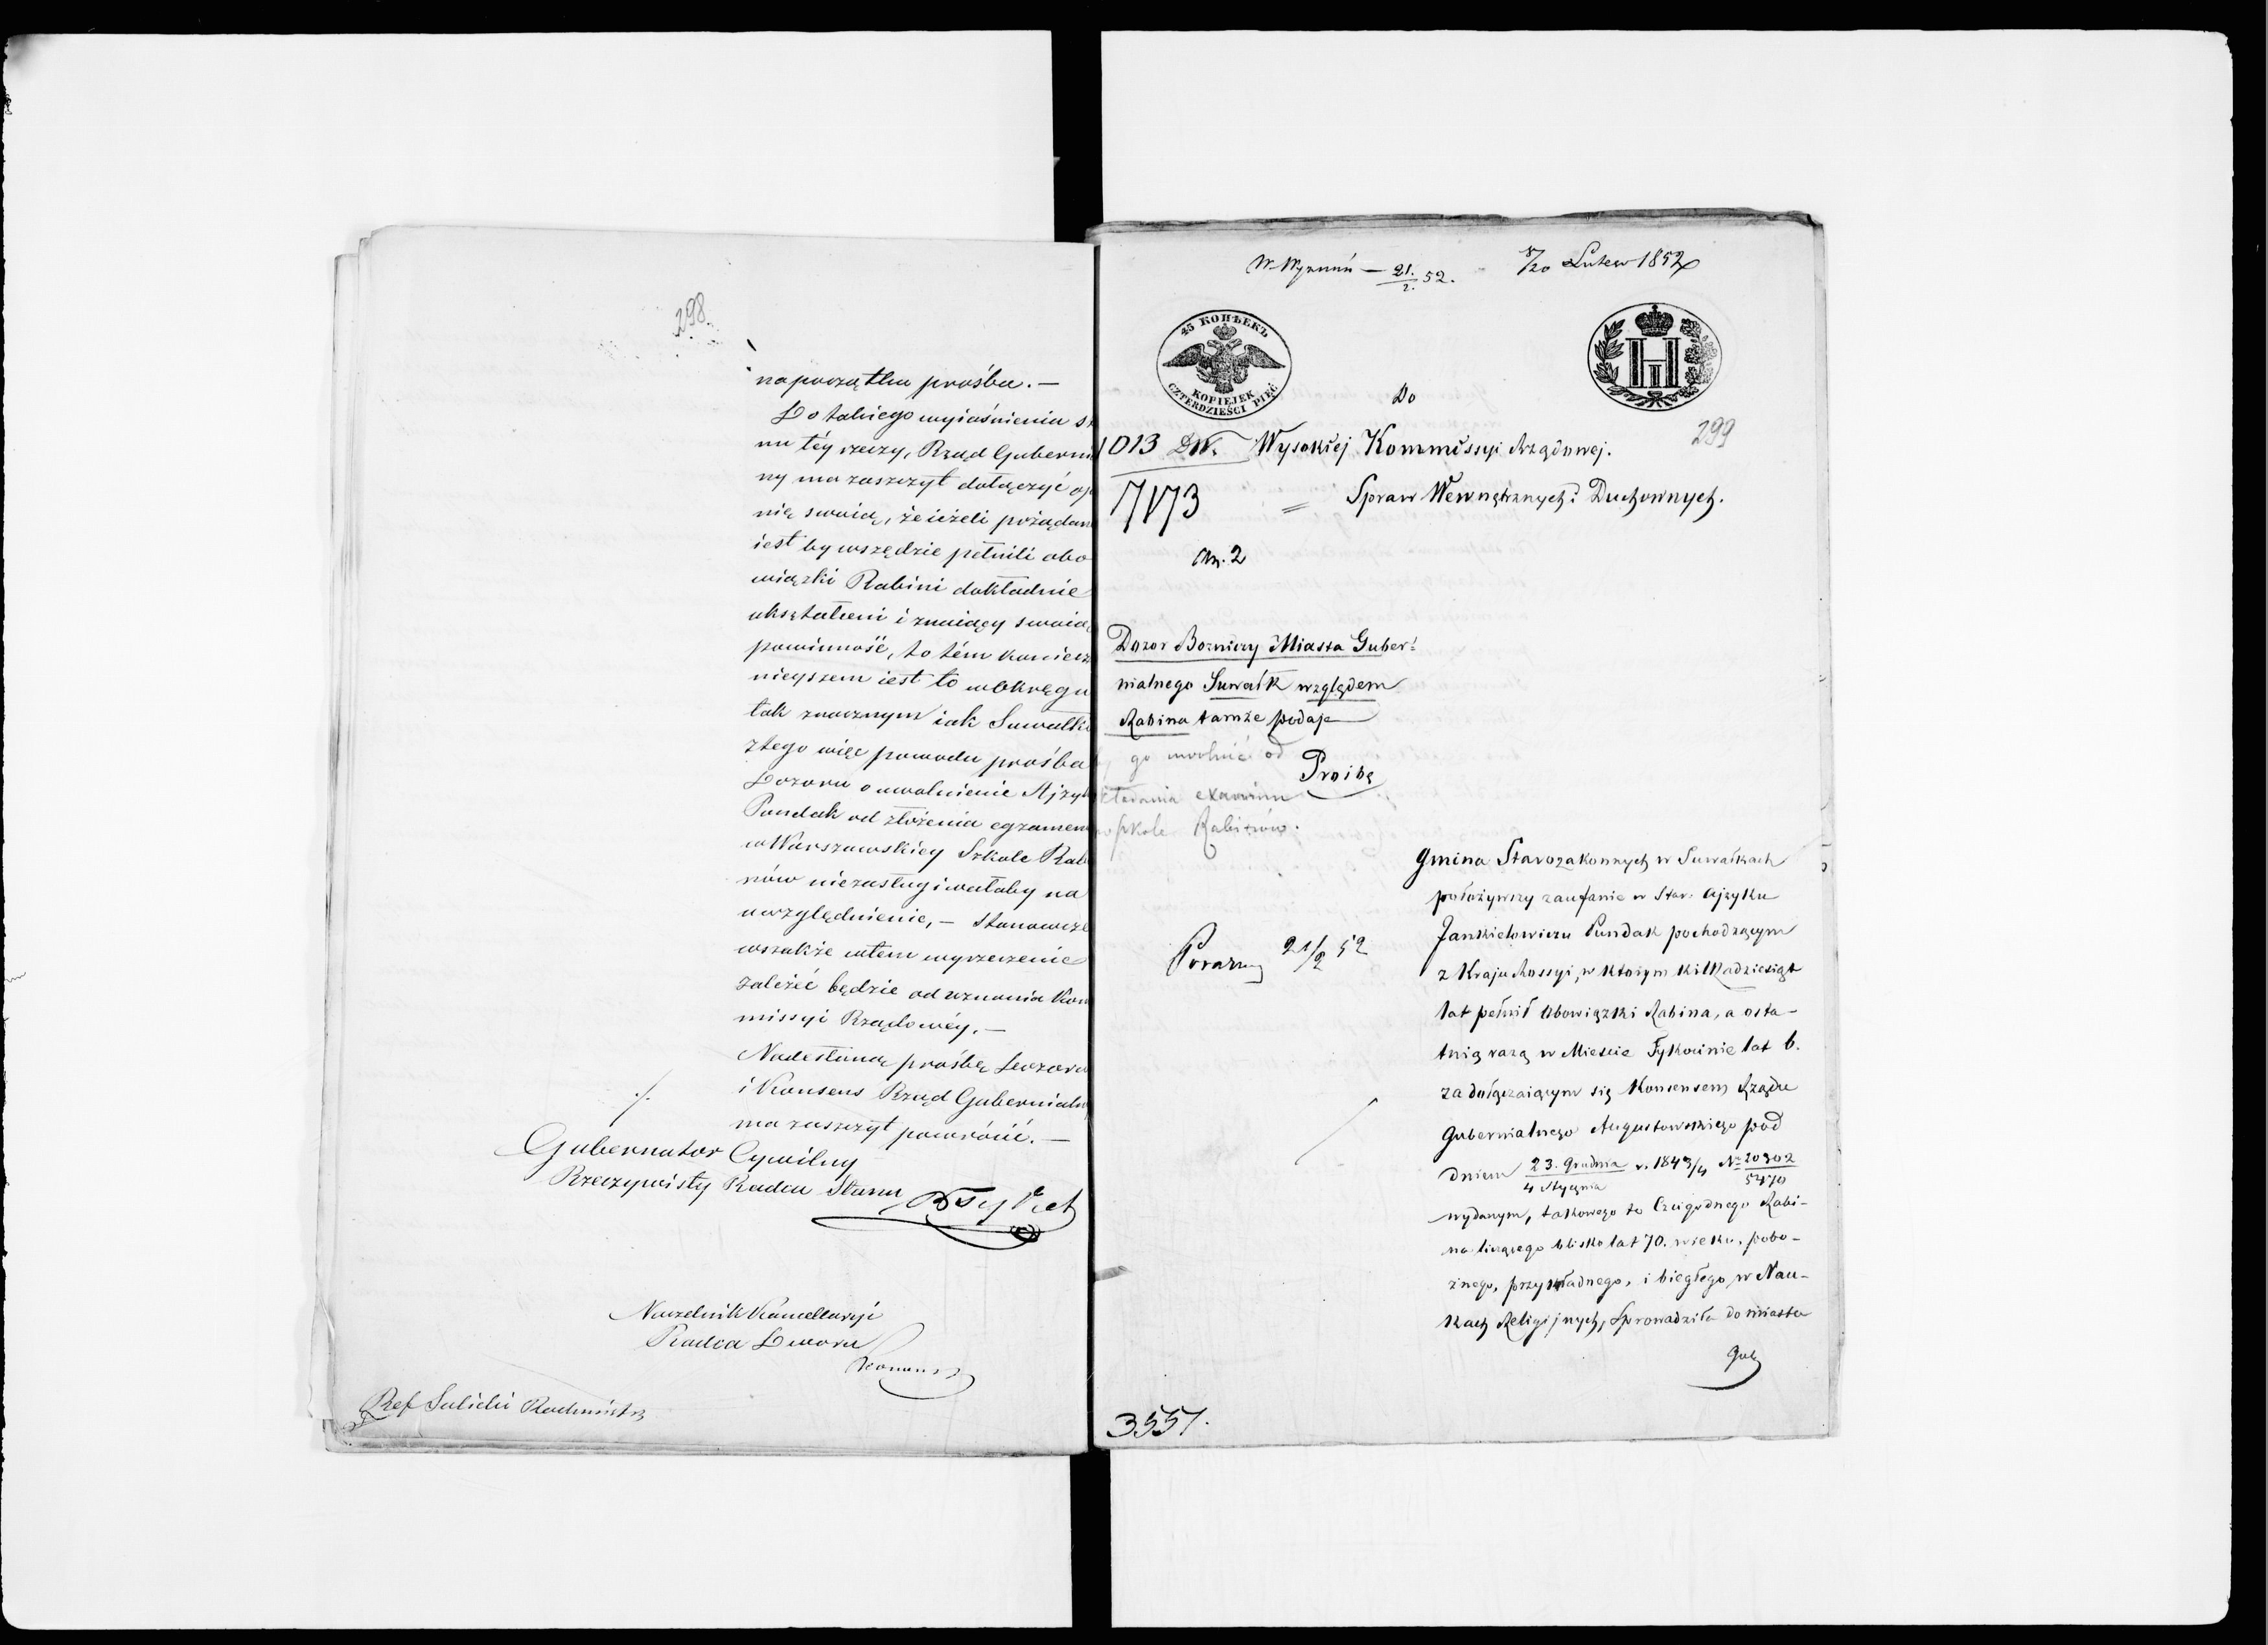 298.
na początku prośba. —
Do takiego wyiaśnienia s
nu téy rzeczy, Rząd Gubern
ny ma zaszczyt dołączyć op
nią swoią, że ieżeli pożądan
iest by wszędzie pełnili obo
wiązki Rabini dokładnie
ukształceni i znaiący swoią
powinność, to tém koniecz
nieyszem iest to w Okręgu
tak znacznym iak Suwałki
z tego więc powodu prośba
Dozoru o uwolnienie Ajzyk
Pundak od złożenia egzamen
w Warszawskiey Szkole Rab
nów niezasługiwałaby na
uwzględnienie, — stanowcze
wszakże w tem wyrzeczenie
zależeć będzie od uznania Kom
missyi Rządowéy. —
Nadesłaną prośbę Dozoru
i Konsens Rząd Gubernialn
ma zaszczyt powrócić. —
Gubernator Cywilny
Rzeczywisty Radca Stanu
Naczelnik Kancellaryi
Radca Dworu
Ref Salicki Rachmistrz
21./2. 52. 8/20 Lutego 1852
45 КОПѢЕКЪ
KOPIEJEK
CZTERDZIEŚCI PIĘĆ
НI
Do
299
1013 DW. Wysokiej Kommissyi Rządowej.
7173 = Spraw Wewnętrznych i Duchownych.
Dozor Bozniczy Miasta Guber:
nialnego Suwałk względem
Rabina tamże podaje
go uwolnić od
Prośbę
kładania examinu
szkole Rabinów.
Gmina Starozakonnych w Suwałkach
położywszy zaufanie w Star. Ajzyku
Jankielowiczu Pundak pochodzącym
21/2 52
z Kraju Rossyi, w którym kilkadziesiąt
lat pełnił Obowiązki Rabina, a osta-
tnią razą w Mieście Tykocinie lat 6.
za dołączaiącym się Konsensem Rządu
Gubernialnego Augustowskiego pod
dniem 23. Grudnia / 4 Stycznia r. 1843/4 № 20302 / 5470
wydanym, takowego to Czcigodnego Rabi-
na liczącego blisko lat 70. wieku, pobo-
żnego, przykładnego, i biegłego w Nau-
kach Religijnych, Sprowadziła do miasta
Gub
3557.